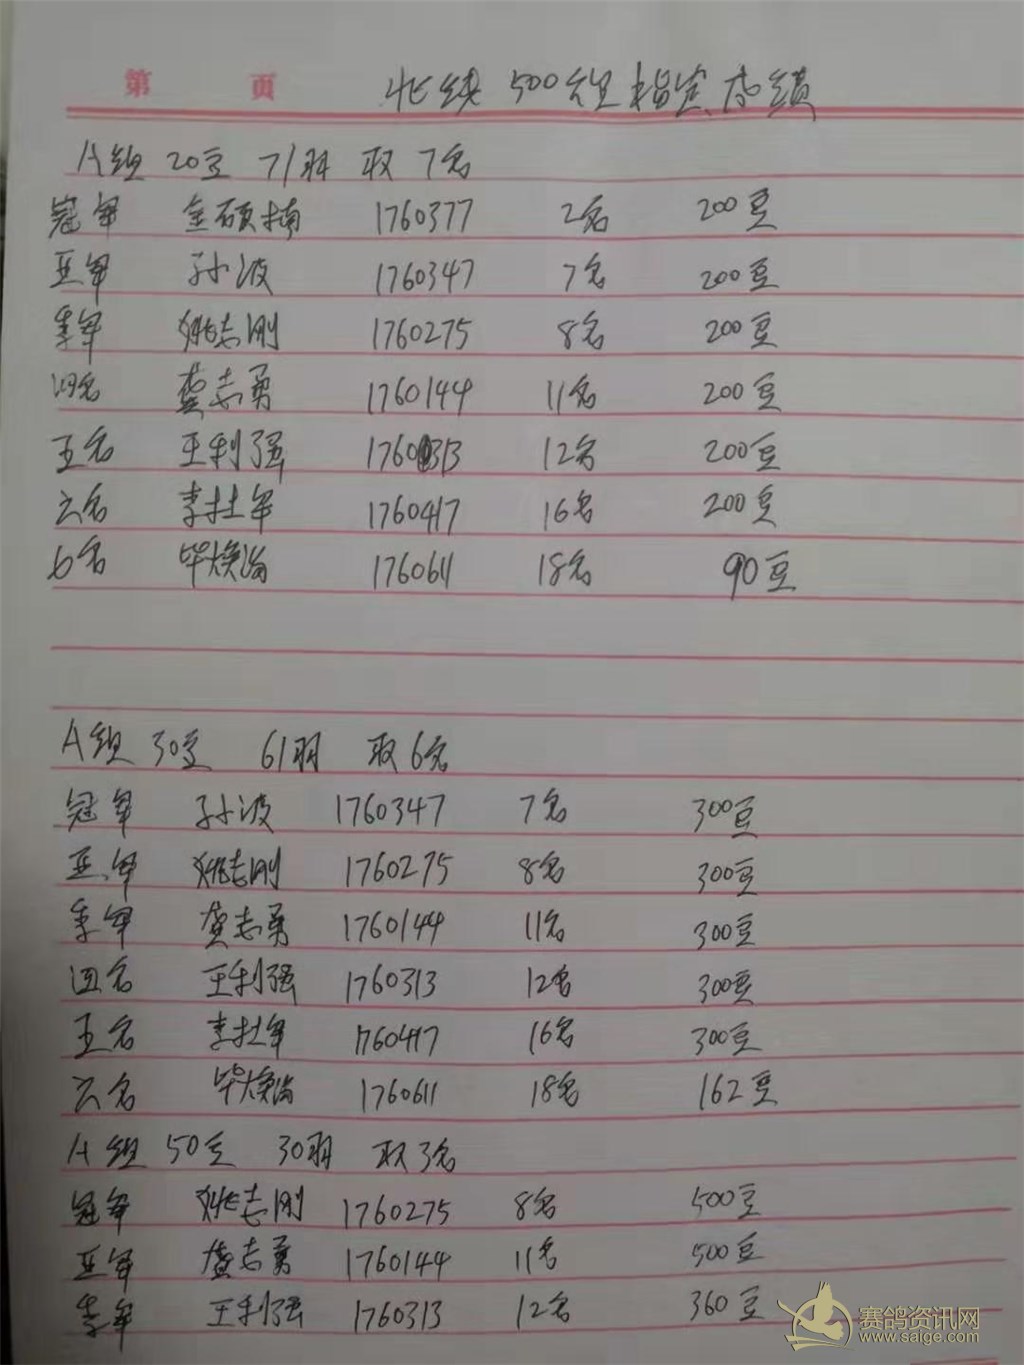 第 页
北线500公里指定成绩
A组 20豆 71羽 取 7名
冠军 金硕楠 1760377 2名 200豆
亚军 孙波 1760347 7名 200豆
季军 姚志刚 1760275 8名 200豆
四名 龚志勇 1760144 11名 200豆
五名 王利强 1760313 12名 200豆
六名 李杜军 1760417 16名 200豆
七名 毕焕 1760611 18名 90豆
A组 30豆 61羽 取6名
冠军 孙波 1760347 7名 300豆
亚军 姚志刚 1760275 8名 300豆
季军 龚志勇 1760144 11名 300豆
四名 王利强 1760313 12名 300豆
五名 李杜军 1760417 16名 300豆
六名 毕焕 1760611 18名 162豆
A组 50豆 30羽 取3名
冠军 姚志刚 1760275 8名 500豆
亚军 龚志勇 1760144 11名 500豆
季军 王利强 1760313 12名 360豆
赛鸽资讯网
www.saige.com